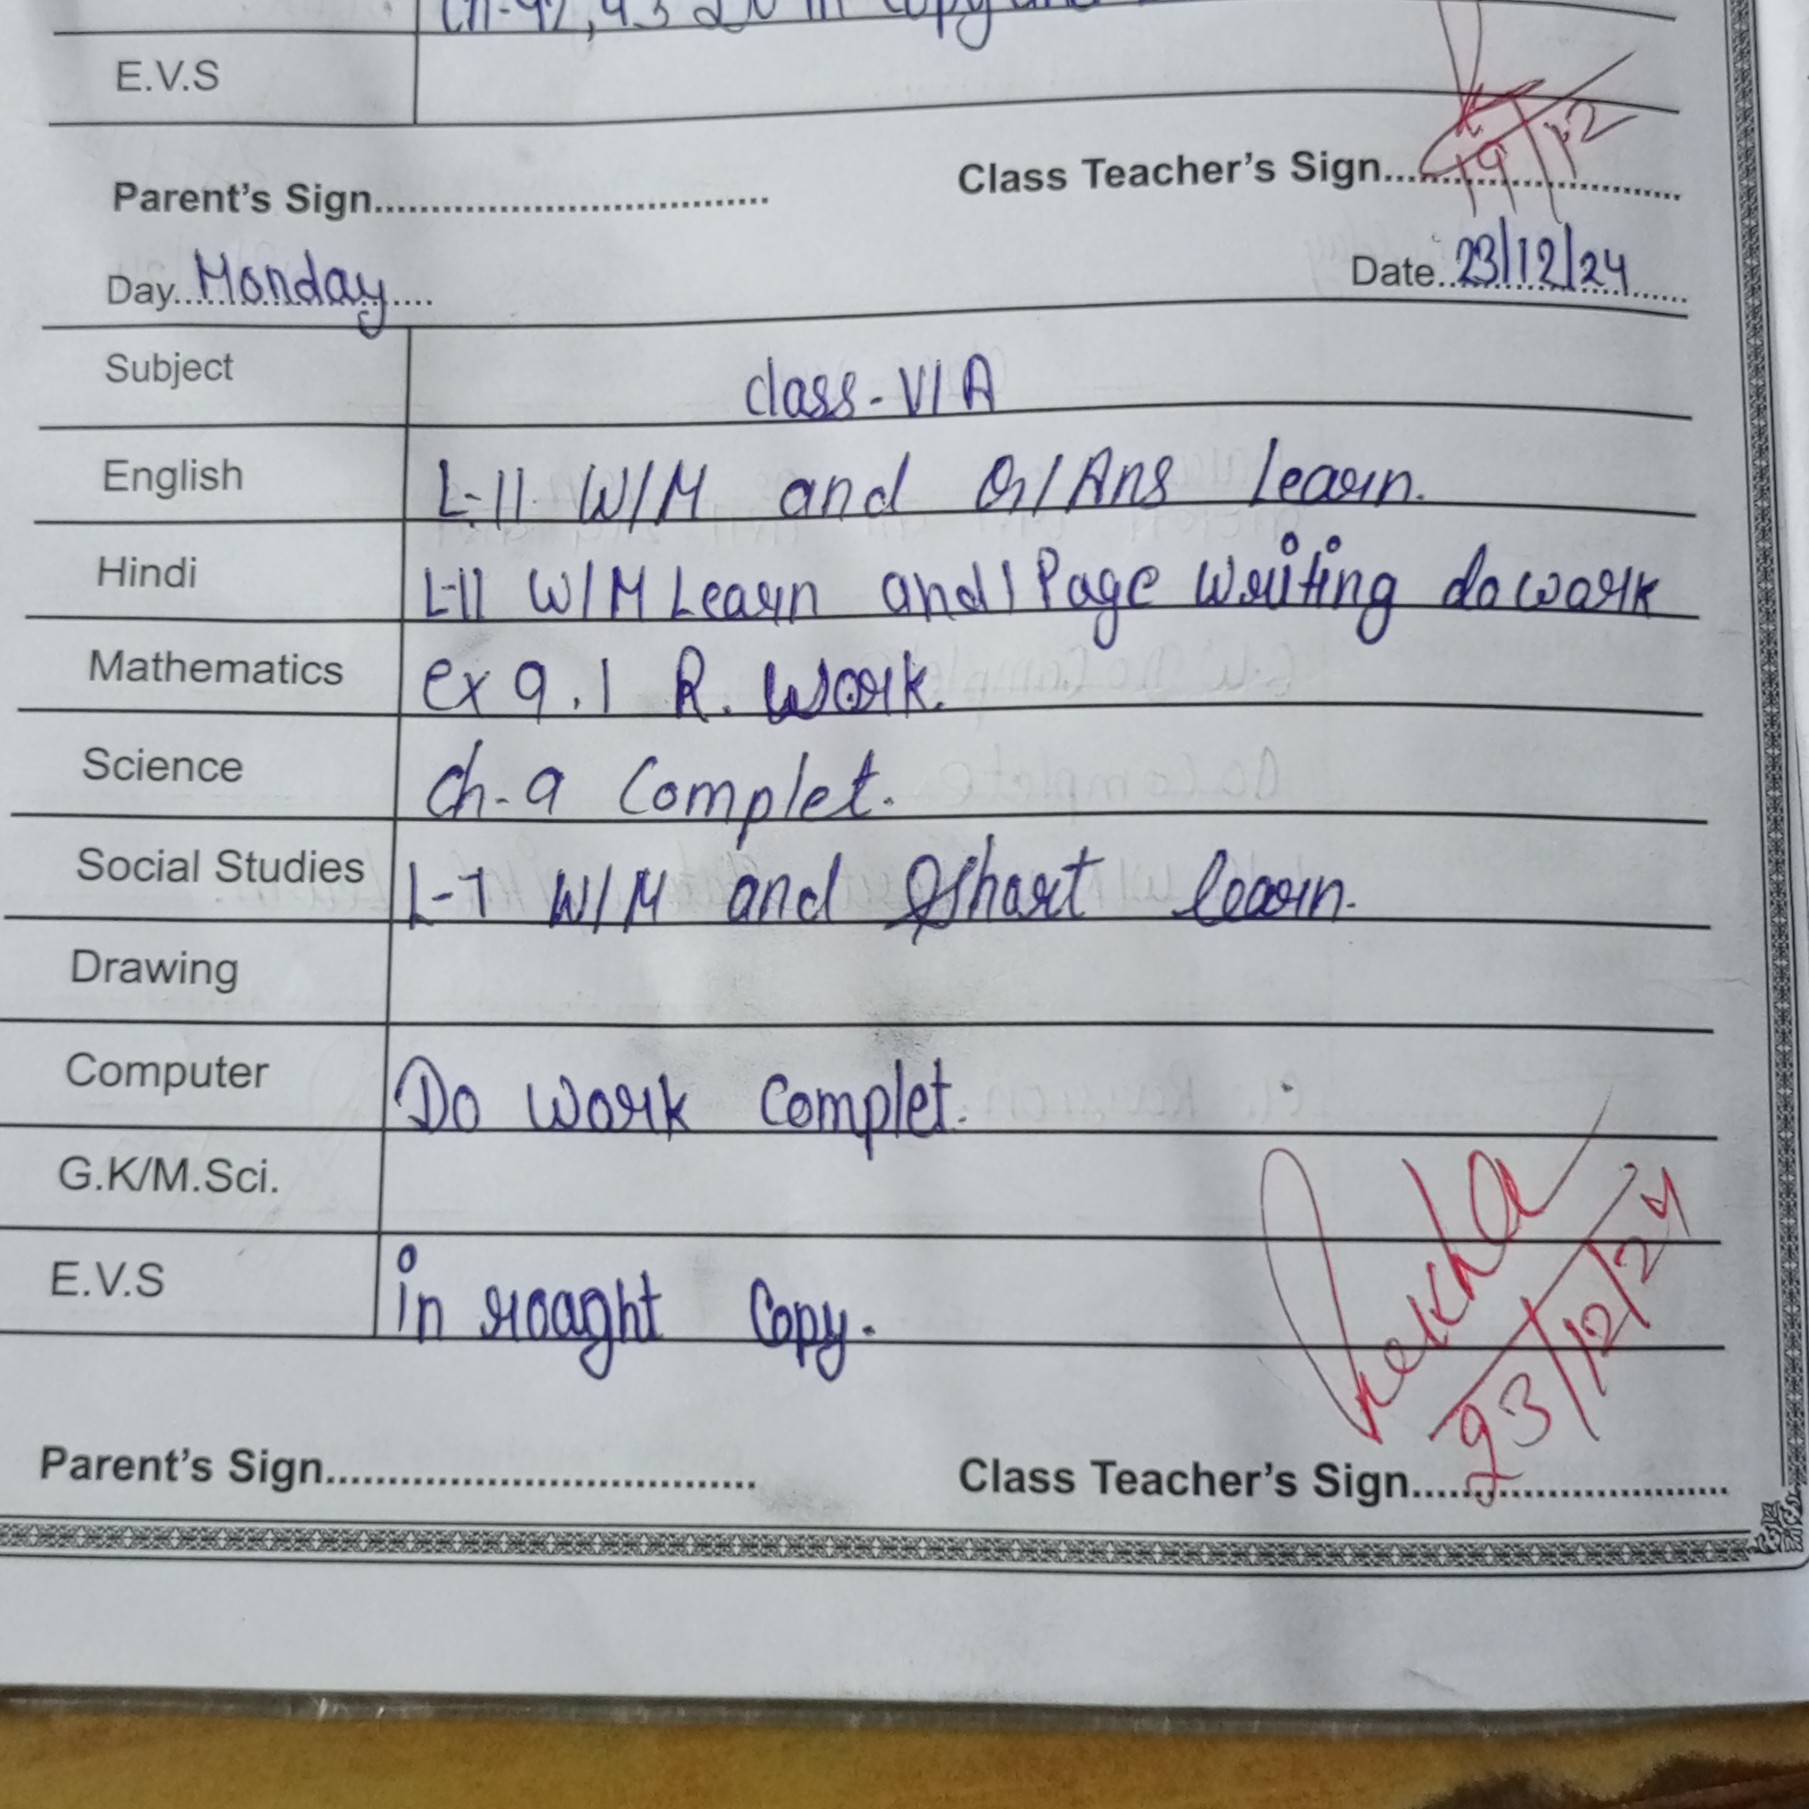 in copy and
E.V.S
Parent's Sign........................................ Class Teacher's Sign........................................
19/12
Day Monday Date 23/12/24
Subject class-VI A
English L-11 W/M and Q/Ans Learn.
Hindi L-11 W/M Learn and 1 Page Writing do work
Mathematics ex 9.1 R. Work.
Science Ch-9 Complet.
Social Studies L-7 W/M and Short learn.
Drawing
Computer Do Work Complet.
G.K/M.Sci.
E.V.S in roaght Copy.
Rekha
23/12/24
Parent's Sign........................................ Class Teacher's Sign........................................